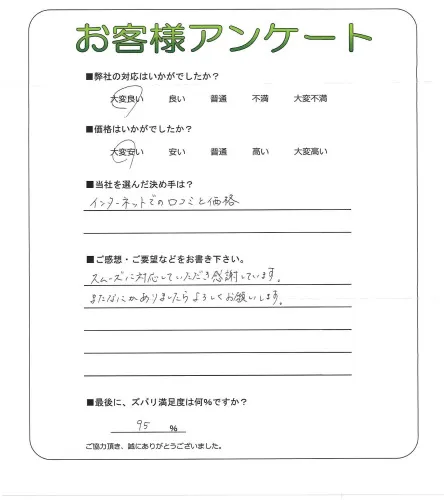 お客様アンケート
■弊社の対応はいかがでしたか？
大変良い 良い 普通 不満 大変不満
■価格はいかがでしたか？
大変安い 安い 普通 高い 大変高い
■当社を選んだ決め手は？
インターネットでの口コミと価格
■ご感想・ご要望などをお書き下さい。
スムーズに対応していただき感謝しています。
またなにかありましたらよろしくお願いします。
■最後に、ズバリ満足度は何％ですか？
95 ％
ご協力頂き、誠にありがとうございました。